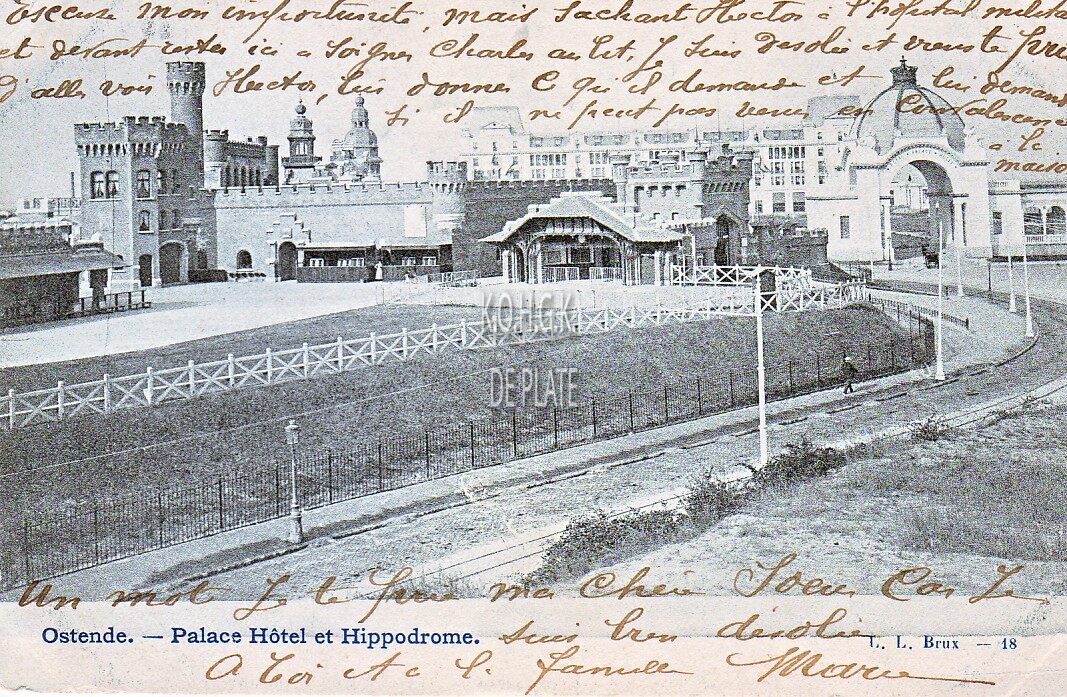 Escuse mon importunité, mais Sachant Hector à l'hôpital milita
et devant rester ici a Soigner Charles au lit, Je Suis Désolée et viens te prie
D'aller voir Hector, lui donner C que il demande et lui demande
si il ne peut pas venir en Convalescence
a la
maison
KOHGK
DE PLATE
Un mot Je te prie ma Chère Soeur Car Je
Ostende. — Palace Hôtel et Hippodrome. suis bien désolée L. L. Brux — 18
A Toi et a la famille Marie